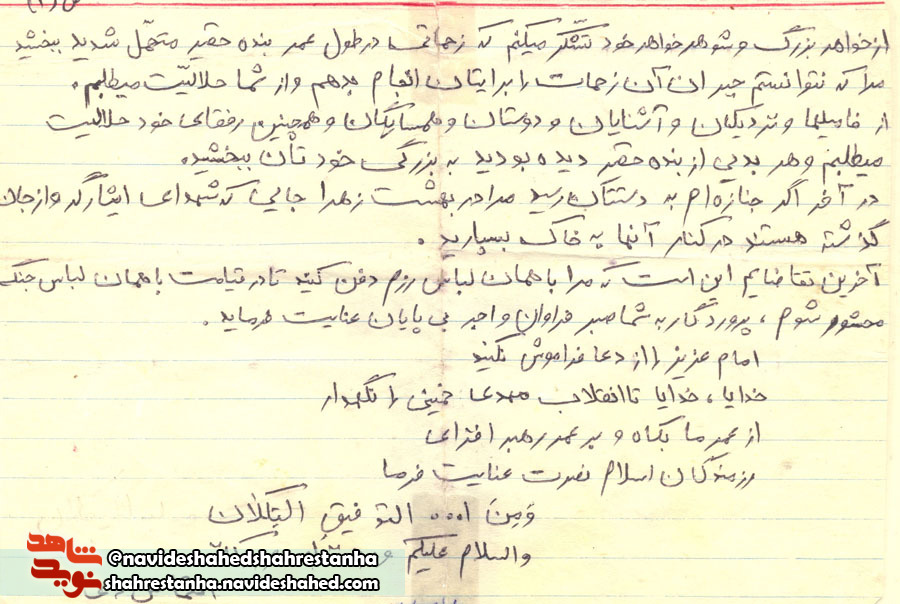 از خواهر بزرگ و شوهر خواهر خود تشکر میکنم که زحماتی در طول عمر بنده حقیر متحمل شدید ببخشید
مرا که نتوانستم جبران آن زحمات را برایتان انجام بدهم و از شما حلالیت میطلبم.
از فامیلها و نزدیکان و آشنایان و دوستان و همسایگان و همچنین رفقای خود حلالیت
میطلبم و هر بدیی از بنده حقیر دیده بودید به بزرگی خودتان ببخشید.
در آخر اگر جنازه‌ام به دستتان رسید مرا در بهشت زهرا جایی که شهدای ایثارگر و از جان
گذشته هستند در کنار آنها به خاک بسپارید.
آخرین تقاضایم این است که مرا با همان لباس رزم دفن کنید تا در قیامت با همان لباس جنگ
محشور شوم، پروردگار به شما صبر فراوان و اجر بی پایان عنایت فرماید.
امام عزیز را از دعا فراموش نکنید
خدایا، خدایا تا انقلاب مهدی خمینی را نگهدار
از عمر ما بکاه و بر عمر رهبر افزای
رزمندگان اسلام نصرت عنایت فرما
وَمِنَ ا... التوفیق التکلان
والسلام علیکم و
شاهد
نوید
@navideshahedshahrestanha
shahrestanha.navideshahed.com